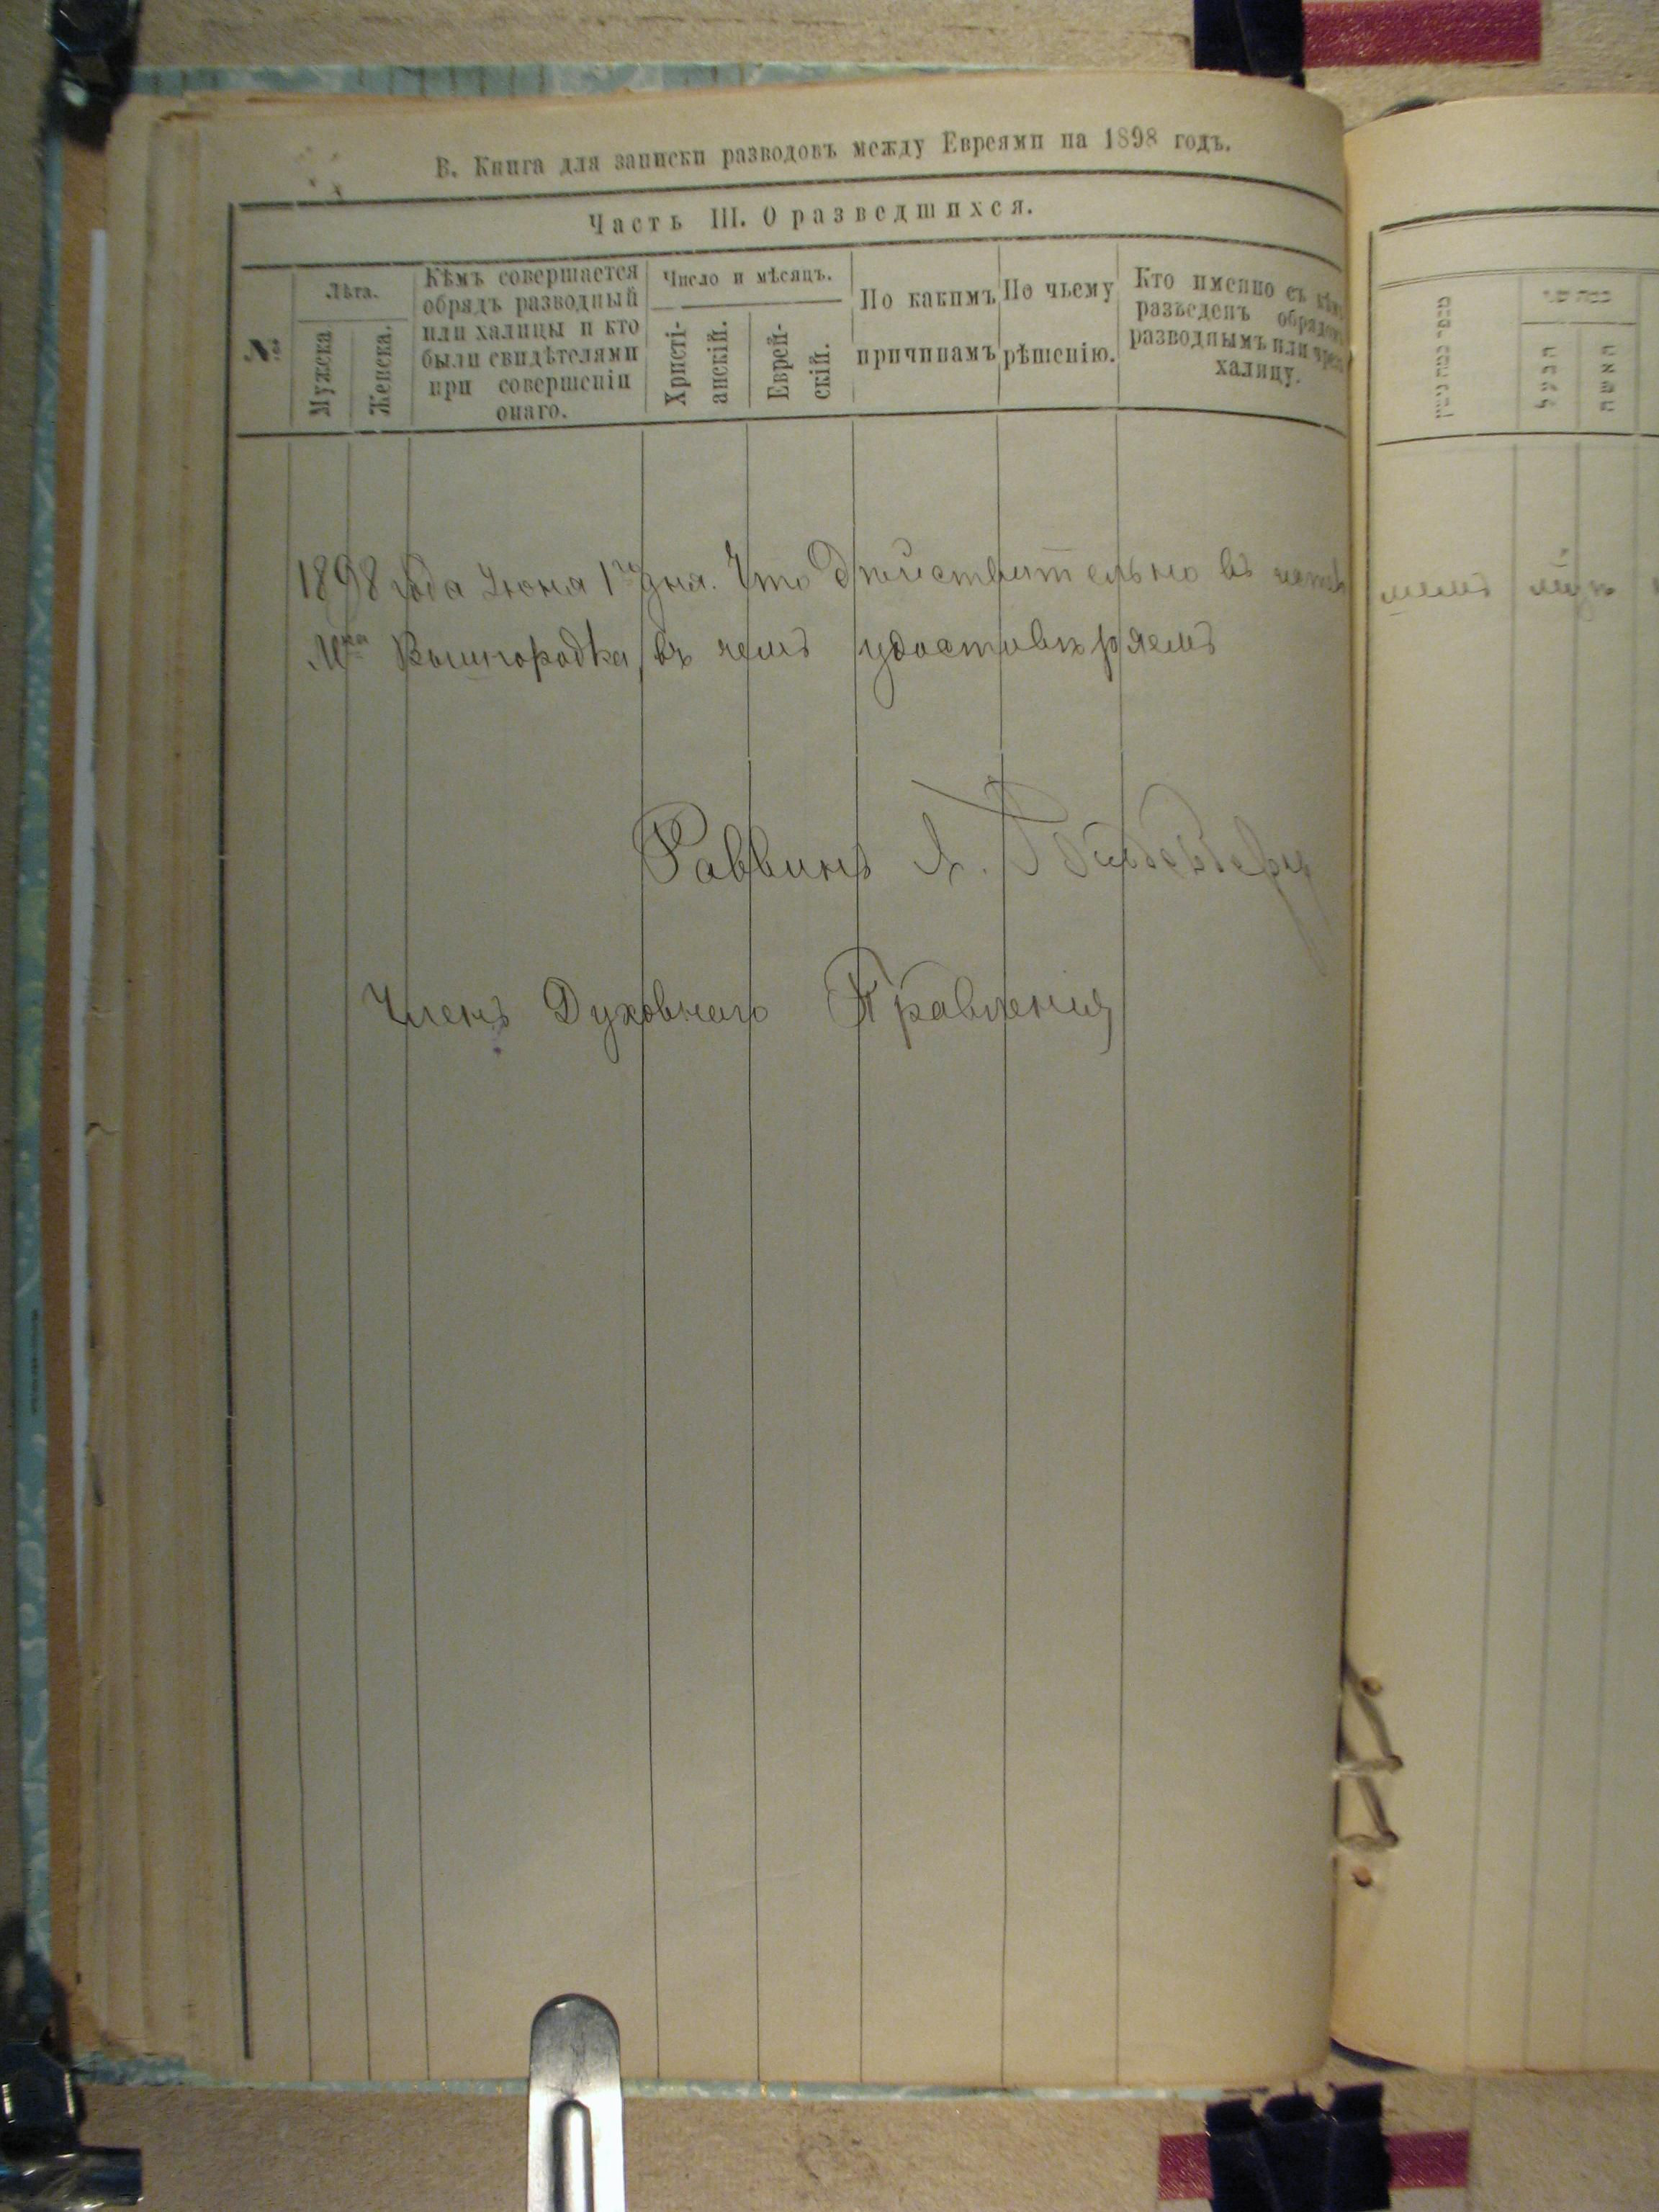 В. Книга для записки разводовъ между Евреями на 1898 годъ.
Часть III. О разведшихся.
№
Лѣта.
Мужска
Женска.
Кѣмъ совершается
обрядъ разводный
или халицы и кто
были свидѣтелями
при совершеніи
онаго.
Число и мѣсяцъ.
Христі-
анскій.
Еврей-
скій.
По какимъ
причинамъ
По чьему
рѣшенію.
Кто именно съ кѣмъ
разведенъ обрядомъ
разводнымъ или чрезъ
халицу.
1898 года Июня 1го дня. Что дѣйствительно въ
Мка Вышгородка, въ чемъ удостовѣряемъ
Раввинъ
Членъ Духовнаго Правленія
הבעל
האשה